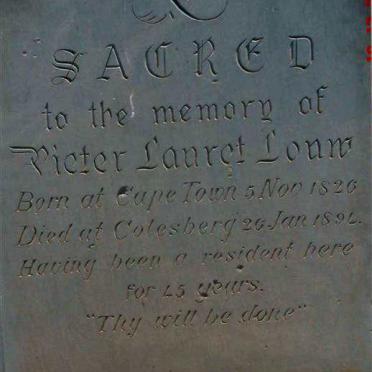 SACRED
to the memory of
Pieter Lauret Louw
Born at Cape Town 5 Nov 1826
Died at Colesberg 26 Jan 1892.
Having been a resident here
for 45 years.
"Thy will be done"